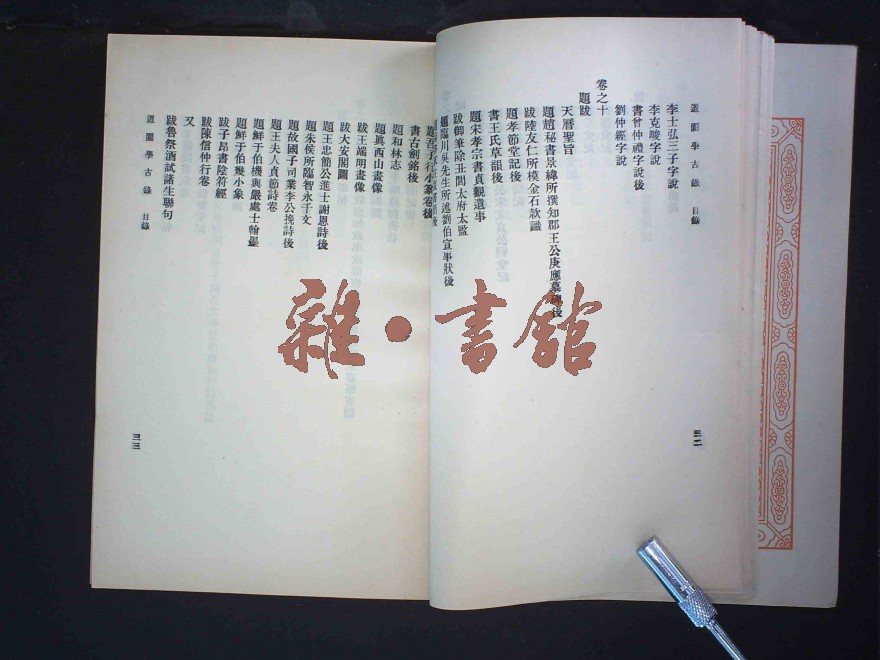 道園學古錄 目錄
李士弘三子字說
李克畯字說
書曾仲禮字說後
劉仲經字說
卷之十
題跋
天曆聖旨
題趙秘書景緯所撰知郡王公庚應墓碑後
跋陸友仁所模金石款識
題孝節堂記後
書王氏草韻後
題宋孝宗書貞觀遺事
跋御筆除丑閭太府太監
題臨川吳先生所述劉伯宣事狀後
題吾子行小篆卷後
書古劍銘後
題和林志
題眞西山畫像
跋王端明畫像
跋大安閣圖
題王忠簡公進士謝恩詩後
題朱侯所臨智永千文
題故國子司業李公挽詩後
題王夫人貞節詩卷
題鮮于伯機與嚴處士翰墨
題鮮于伯幾小象
跋子昂書陰符經
跋陳信仲行卷
又
跋魯祭酒試諸生聯句
道園學古錄 目錄
三三
雜·書館